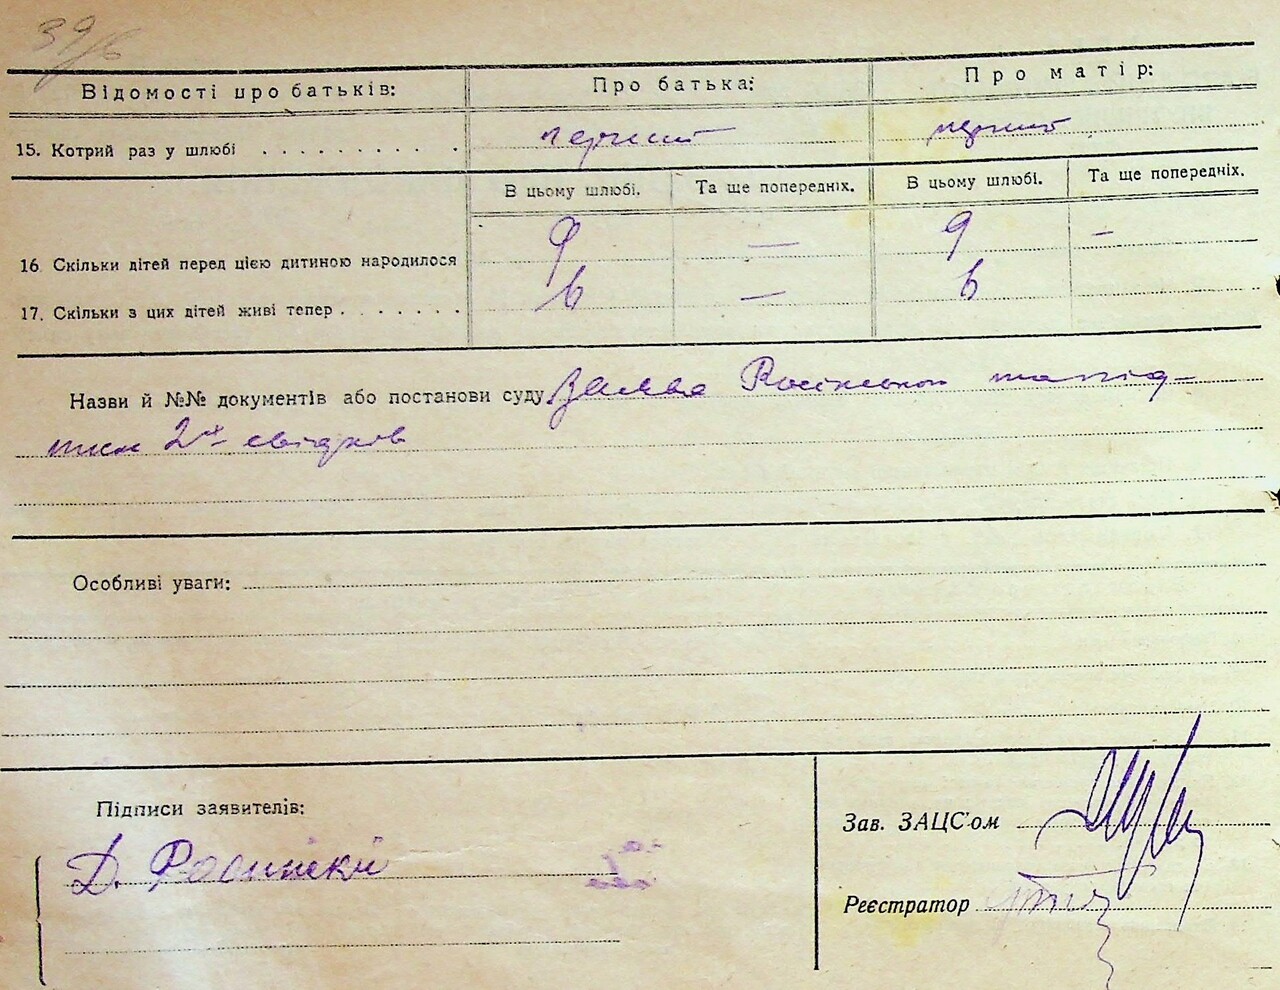 39/6
Відомості про батьків: Про батька: Про матір:
15. Котрий раз у шлюбі . . . . . . . . . . перший перший
В цьому шлюбі. Та ще попередніх. В цьому шлюбі. Та ще попередніх.
16. Скільки дітей перед цією дитиною народилося 9 — 9 —
17. Скільки з цих дітей живі тепер . . . . . . . 6 — 6
Назви й №№ документів або постанови суду Заява та під-
пис 2х свідків
Особливі уваги:
Підписи заявителів:
Зав. ЗАЦС'ом
Д.
Реєстратор